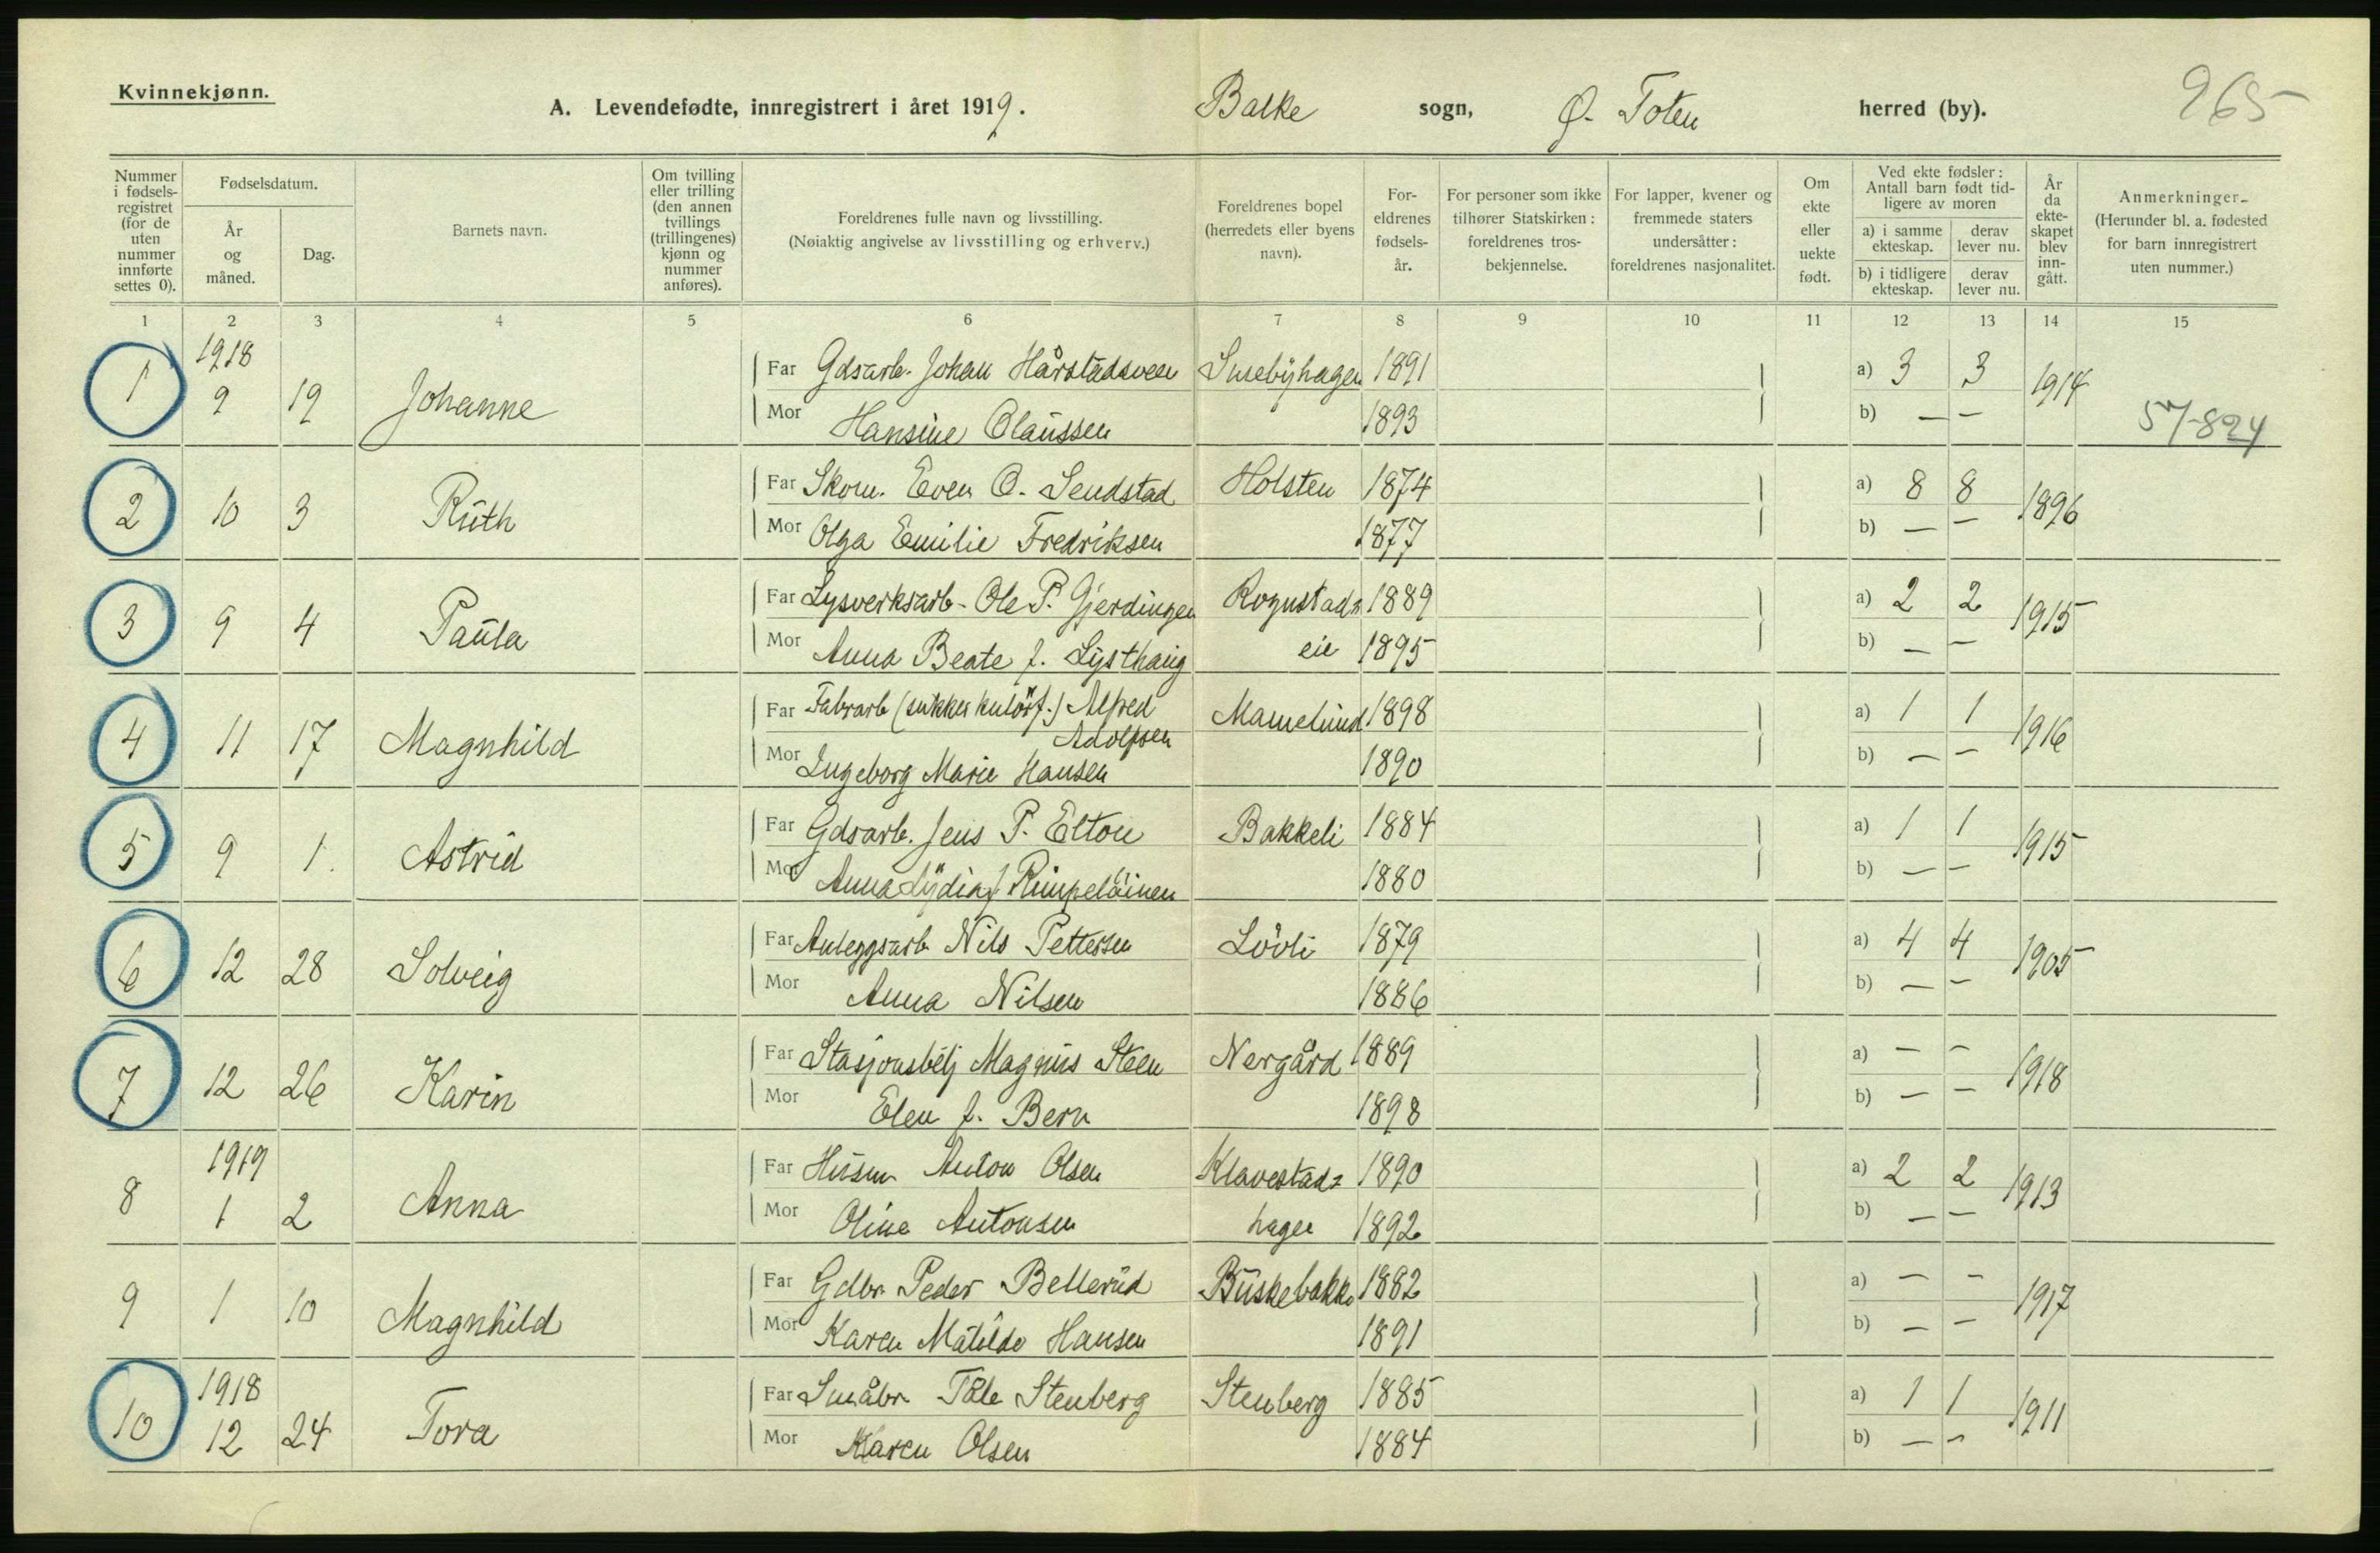 Kvinnekjønn.
A. Levendefødte, innregistrert i året 1919. Balke sogn, Ø. Toten herred (by). 965
Nummer i fødsels-registret (for de uten nummer innførte settes 0).
Fødselsdatum.
År og måned.
Dag.
Barnets navn.
Om tvilling eller trilling (den annen tvillings (trillingenes) kjønn og nummer anføres).
Foreldrenes fulle navn og livsstilling.
(Nøiaktig angivelse av livsstilling og erhverv.)
Foreldrenes bopel (herredets eller byens navn).
For-eldrenes fødsels-år.
For personer som ikke tilhører Statskirken: foreldrenes tros-bekjennelse.
For lapper, kvener og fremmede staters undersåtter: foreldrenes nasjonalitet.
Om ekte eller uekte født.
Ved ekte fødsler: Antall barn født tid-ligere av moren
a) i samme ekteskap.
derav lever nu.
b) i tidligere ekteskap.
derav lever nu.
År da ekte-skapet blev inn-gått.
Anmerkninger.
(Herunder bl. a. fødested for barn innregistrert uten nummer.)
1 2 3 4 5 6 7 8 9 10 11 12 13 14 15
1 1918 9 19 Johanne Far Gdsarb. Johan Hårstadsveen Smebyhagen 1891 a) 3 3 1914
Mor Hansine Olaussen 1893 b) — — 57-824
2 10 3 Ruth Far Skom. Even O. Sendstad Holsten 1874 a) 8 8 1896
Mor Olga Emilie Fredriksen 1877 b) — —
3 9 4 Paula Far Lysverksarb- Ole P. Gjerdingen Rognstads 1889 a) 2 2 1915
Mor Anna Beate f. Lysthaug eie 1895 b) — —
4 11 17 Magnhild Far Fabrarb (sukker kulörf.) Alfred Adolfsen Mamelund 1898 a) 1 1 1916
Mor Ingeborg Marie Hansen 1890 b) — —
5 9 1. Astrid Far Gdsarb. Jens P. Elton Bakkeli 1884 a) 1 1 1915
Mor Anna Lydia f Rimpeläinen 1880 b) — —
6 12 28 Solveig Far Anleggsarb Nils Pettersen Lövli 1879 a) 4 4 1905
Mor Anna Nilsen 1886 b) — —
7 12 26 Karin Far Stasjonsbetj Magnus Steen Nergård 1889 a) — — 1918
Mor Elen f. Bern 1898 b) — —
8 1919 1 2 Anna Far Husm Anton Olsen Klavestads 1890 a) 2 2 1913
Mor Oline Antonsen hagen 1892 b) — —
9 1 10 Magnhild Far Gdbr. Peder Bellerud Buskebakke 1882 a) — — 1917
Mor Karen Matilde Hansen 1891 b) — —
10 1918 12 24 Tora Far Småbr Tåle Stenberg Stenberg 1885 a) 1 1 1911
Mor Karen Olsen 1884 b) — —